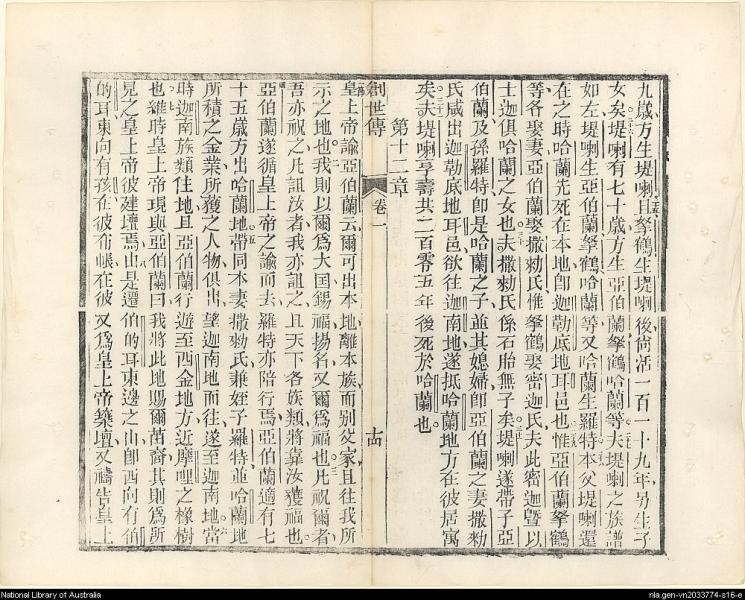 九歲方生堤喇且拏鶴生堤喇後尙活一百一十九年另生子
女矣堤喇有七十歲方生亞伯蘭拏鶴哈蘭等夫堤喇之族譜
如左堤喇生亞伯蘭拏鶴哈蘭等又哈蘭生羅特本父堤喇還
在之時哈蘭先死在本地卽迦勒底地耳邑也惟亞伯蘭拏鶴
等各娶妻亞伯蘭娶撒勑氏惟拏鶴娶密迦氏夫此密迦曁以
士迦俱哈蘭之女也夫撒勑氏係石胎無子矣堤喇遂帶子亞
伯蘭及孫羅特卽是哈蘭之子並其媳婦卽亞伯蘭之妻撒勑
氏咸出迦勒底地耳邑欲往迦南地遂抵哈蘭地方在彼居寓
矣夫堤喇享壽共二百零五年後死於哈蘭也
第十二章
創世傳
卷一
古
皇上帝諭亞伯蘭云爾可出本地離本族而別父家且往我所
示之地也我則以爾爲大囯錫福揚名又爾爲福也凡祝爾者
吾亦祝之凡詛汝者我亦詛之且天下各族類將靠汝獲福也
亞伯蘭遂循皇上帝之諭而去羅特亦陪行焉亞伯蘭適有七
十五歲方出哈蘭地帶同本妻撒勑氏兼姪子羅特並哈蘭地
所積之金業所獲之人物俱出望迦南地而往遂至迦南地當
時迦南族類住地且亞伯蘭行遊至西金地方近摩哩之橡樹
也維時皇上帝現與亞伯蘭曰我將此地賜爾苗裔其則爲所
見之皇上帝彼建壇焉由是還伯的耳東邊之山卽西向有伯
的耳東向有孩在彼布帳在彼又爲皇上帝築壇又禱告皇上
National Library of Australia
nla.gen-vn2033774-s16-e